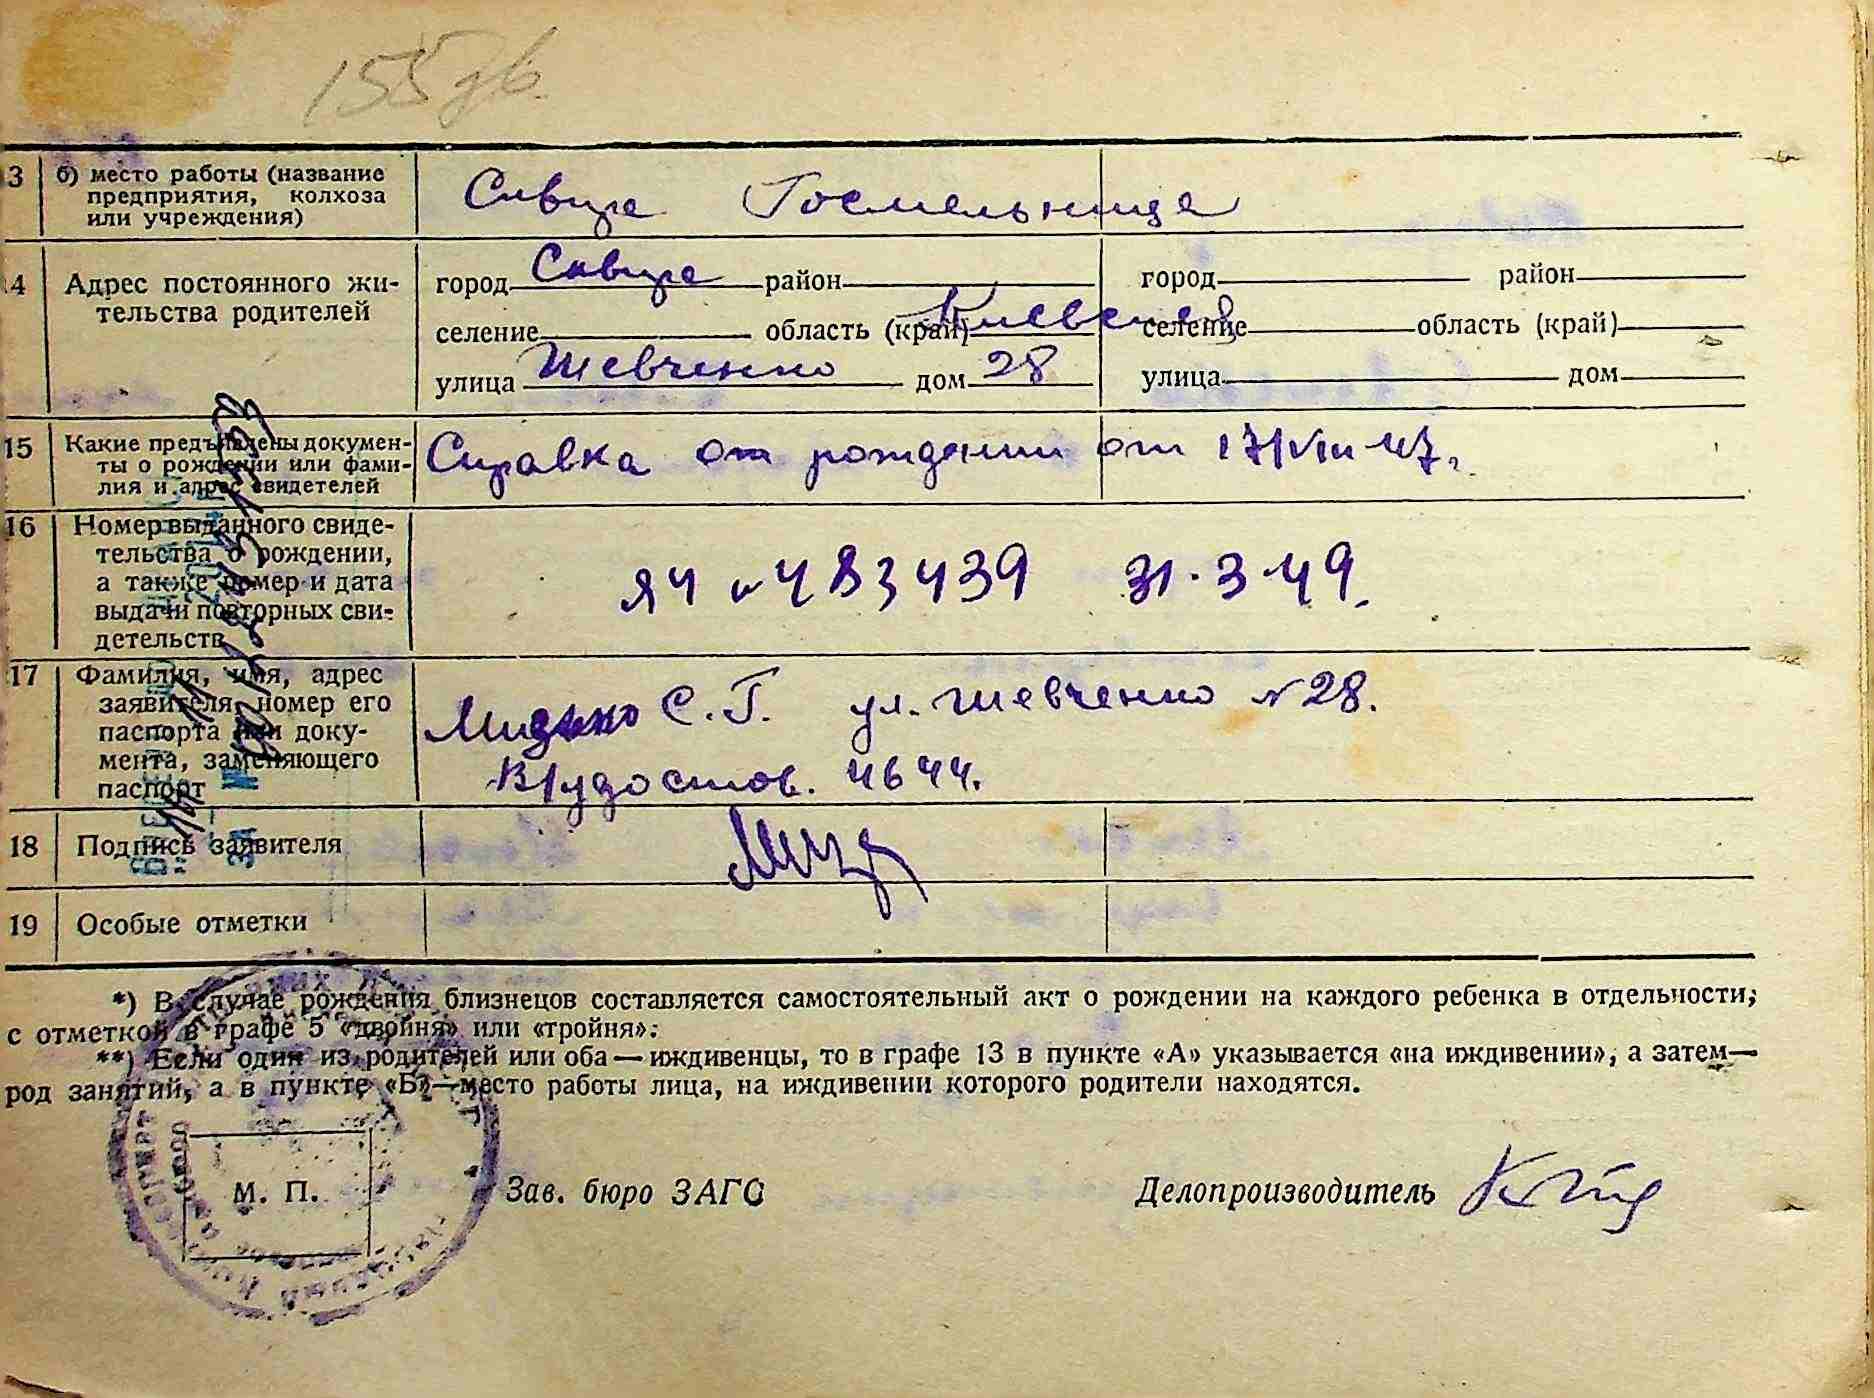 155 зв.
3 б) место работы (название предприятия, колхоза или учреждения) Сквира Госмельница
4 Адрес постоянного жи-
тельства родителей
город Сквира район город район
селение область (край) Киевская селение область (край)
улица Шевченко дом 28 улица дом
15 Какие предъявлены докумен-
ты о рождении или фами-
лия и адрес свидетелей
Справка от рождении от 17/VIII 47 г.
16 Номер выданного свиде-
тельства о рождении,
а также номер и дата
выдачи повторных сви-
детельств
ЯЧ № 483439 31.3.49.
17 Фамилия, имя, адрес
заявителя, номер его
паспорта или доку-
мента, заменяющего
паспорт
С. Г. ул. Шевченко № 28.
удостов. 4644.
18 Подпись заявителя
19 Особые отметки
*) В случае рождения близнецов составляется самостоятельный акт о рождении на каждого ребенка в отдельности,
с отметкой в графе 5 «двойня» или «тройня».
**) Если один из родителей или оба — иждивенцы, то в графе 13 в пункте «А» указывается «на иждивении», а затем—
род занятий, а в пункте «Б»—место работы лица, на иждивении которого родители находятся.
М. П. Зав. бюро ЗАГС Делопроизводитель